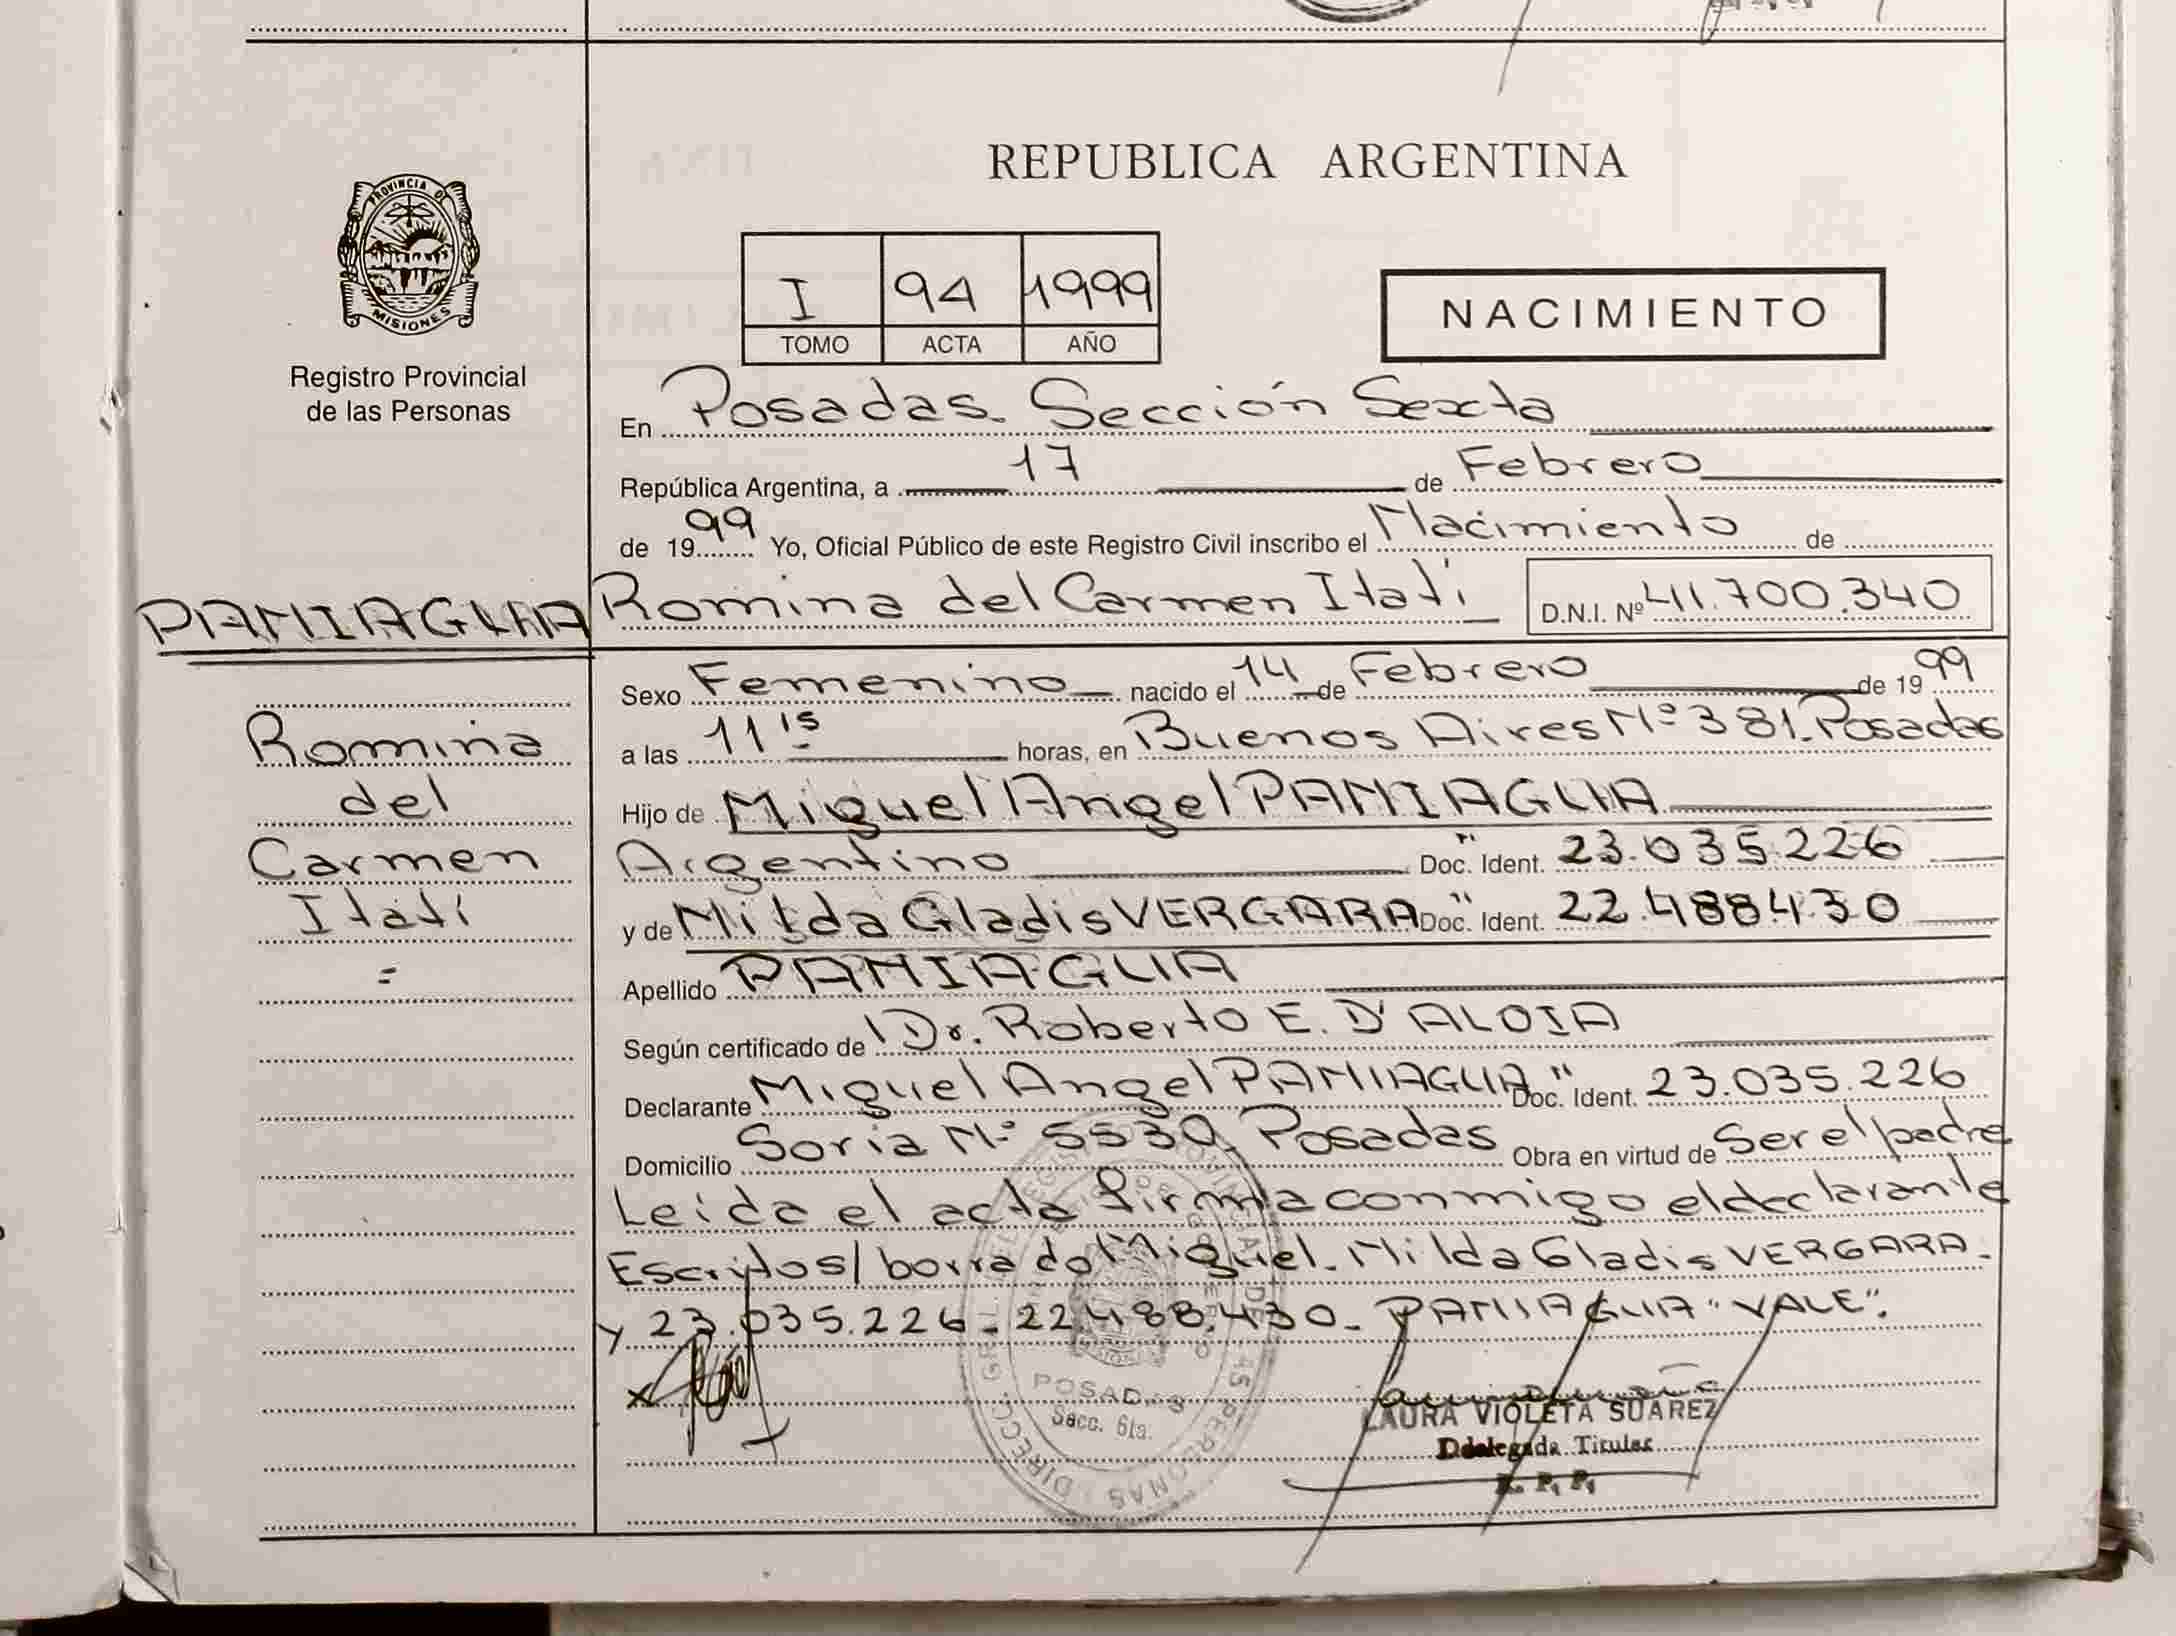 REPUBLICA ARGENTINA
PROVINCIA DE
MISIONES
Registro Provincial
de las Personas
I 94 1999
TOMO ACTA AÑO
NACIMIENTO
En Posadas Sección Sexta
República Argentina, a 17 de Febrero
de 1999 Yo, Oficial Público de este Registro Civil inscribo el Nacimiento de
PANIAGUA Romina del Carmen Itatí D.N.I. Nº 41.700.340
Sexo Femenino nacido el 14 de Febrero de 1999
a las 11 15 horas, en Buenos Aires Nº 381. Posadas
Hijo de Miguel Angel PANIAGUA
Argentino Doc. Ident. 23.035.226
y de Nilda Gladis VERGARA Doc. Ident. 22.488.430
Apellido PANIAGUA
Según certificado de Dr. Roberto E. D'ALOIA
Declarante Miguel Angel PANIAGUA Doc. Ident. 23.035.226
Domicilio Soria Nº 5530 Posadas Obra en virtud de Ser el padre
Leída el acta firma conmigo el declarante
Escritos/ borrado Miguel. Nilda Gladis VERGARA.
y 23.035.226 - 22.488.430 - PANIAGUA "VALE".
Romina
del
Carmen
Itatí
=
POSADAS
Secc. 6ta.
LAURA VIOLETA SUAREZ
Delegada Titular
R. P. P.